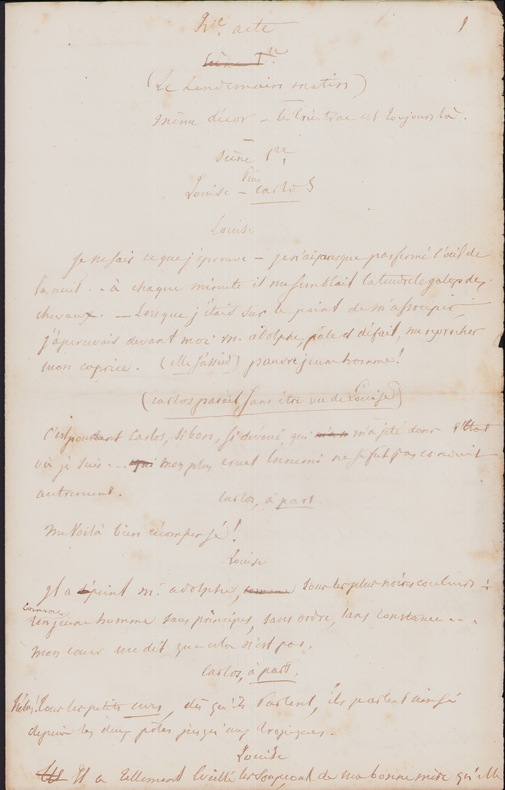 2e acte
1
Scène 1re
(Le Lendemain matin)
même décor - est toujours là.
Scène 1re
Louise - puis Carlos
Louise
Je ne sais ce que j'éprouve - je n'ai presque pas fermé l'oeil de
la nuit. - à chaque minute il me semblait entendre le galop des
chevaux. - Lorsque j'étais sur le point de m'assoupir,
j'apercevais devant moi mr. adolphe, pâle et défait, me reprocher
mon caprice. (elle s'assied) pauvre jeune homme!
(Carlos paraît sans être vu de Louise)
C'est pourtant Carlos, si bon, si dévoué, qui m'a jeté dans l'état
où je suis ... qui mon plus cruel ennemi ne se fut pas conduit
autrement.
Carlos, à part
me voilà bien récompensé!
Louise
Il a dépeint mr. adolphe, comme sous les plus noires couleurs :
Comme
un jeune homme sans principes, sans ordre, sans constance ...
mon coeur me dit que cela n'est pas.
Carlos, à part.
Hélas! tous les petits , dès qu'ils parlent, ils parlent ainsi
depuis les deux pôles jusqu'aux tropiques.
Louise
Il a tellement éveillé les soupçons de ma bonne mère qu'elle